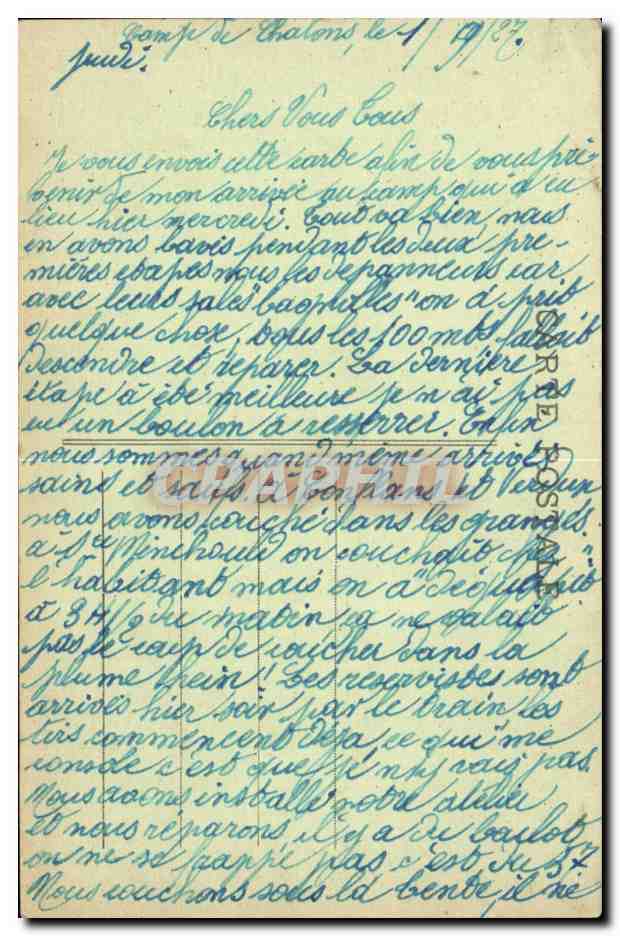 Camp de Chalons, le 1/9/27.
jeudi.
Chers Vous Tous
Je vous envois cette carte afin de vous pré-
venir de mon arrivée au camp qui a eu
lieu hier mercredi. Tout va bien, nous
en avons bavés pendant les deux pre-
mières etapes nous les depanneurs car
avec leurs sales "bagnolles" on a prit
quelque chose, tous les 100 mts fallait
descendre et réparer. La dernière
étape à été meilleure je n'ai pas
eu un boulon à resserrer. Enfin
nous sommes quand même arrivé
sains et saufs à et Verdun
nous avons couché dans les granges
à Ste Minehould on couchait chez
l'habitant mais on a
à 3 H 1/2 du matin ça ne valait
pas le coup de coucher dans la
plume hein! Les reservistes sont
arrivés hier soir par le train les
tirs commencent déja, ce qui me
console c'est que je n'y vais pas.
Nous avons installé notre atelier
et nous réparons il y a du boulot
on ne se frappe pas c'est du 37
Nous couchons sous la tente, il ne
CARTE POSTALE
CPAPHIL